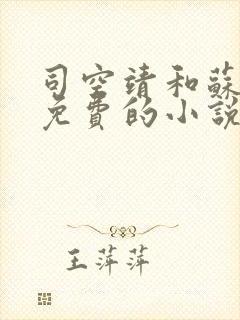 司空靖和蘇
免費的小說
王萍萍